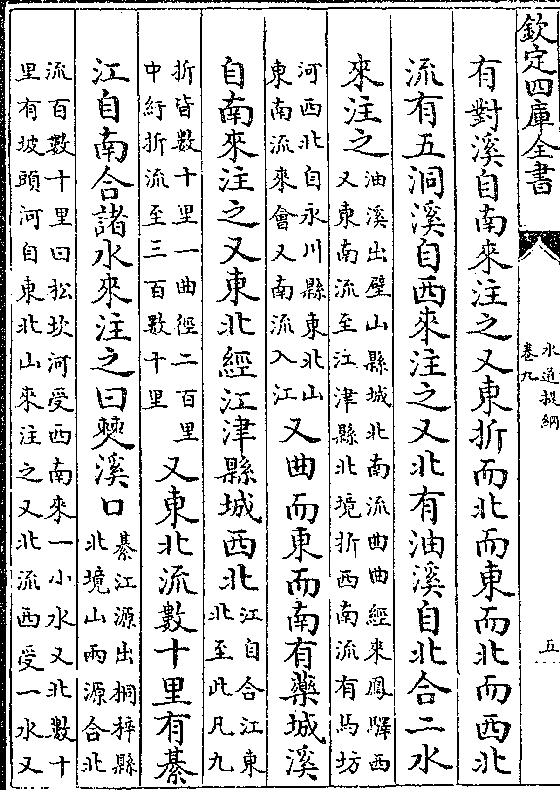 欽定四庫全書
水道提綱
卷九
五
有對溪自南來注之又東折而北而東而北而西北
流有五洞溪自西來注之又北有油溪自北合二水
來注之
油溪出壁山縣城北南流曲曲經來鳳驛西
又東南流至江津縣北境折西南流有馬坊
河西北自永川縣東北山
東南流來會又南流入江
又曲而東而南有藥城溪
自南來注之又東北經江津縣城西北
江自合江東
北至此凡九
折皆數十里一曲徑二百里
中紆折流至三百數十里
又東北流數十里有綦
江自南合諸水來注之曰僰溪口
綦江源出桐梓縣
北境山兩源合北
流百數十里曰松坎河受西南來一小水又北數十
里有坡頭河自東北山來注之又北流西受一水又